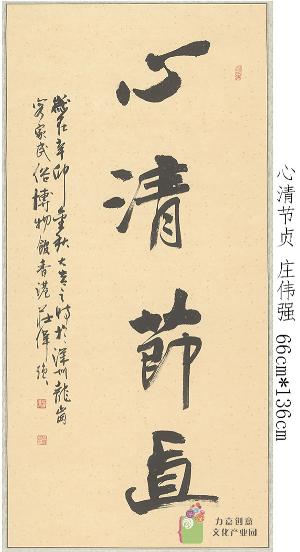 心清節直
歲在辛卯金秋大吉之時於深圳龍崗
客家民俗博物館香港莊偉強
心清节贞 庄伟强 66cm*136cm
力嘉创意
文化产业园